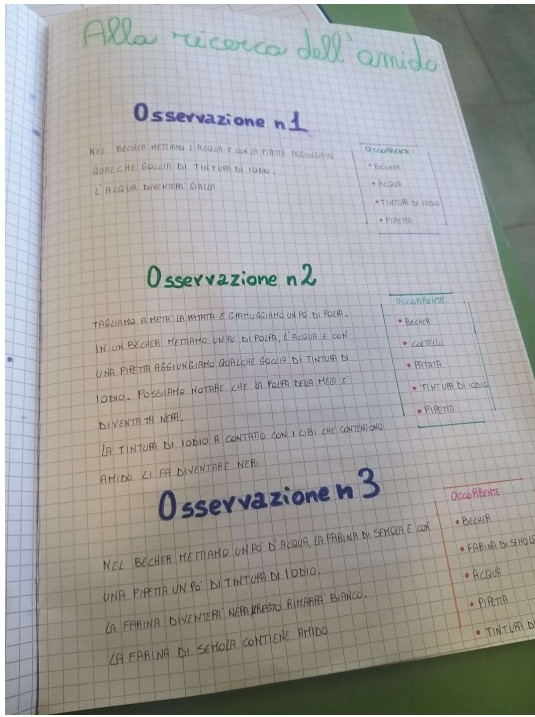 Alla ricerca dell'amido
Osservazione n 1
NEL BECHER METTIAMO L'ACQUA E CON LA PIPETTA AGGIUNGIAMO
QUALCHE GOCCIA DI TINTURA DI IODIO.
L'ACQUA DIVENTERÀ GIALLA
OCCORRENTE:
• BECHER
• ACQUA
• TINTURA DI IODIO
• PIPETTA
Osservazione n 2
TAGLIAMO A METÀ LA PATATA E GRATTUGGIAMO UN PO' DI POLPA.
IN UN BECHER METTIAMO UN PO' DI POLPA, L'ACQUA E CON
UNA PIPETTA AGGIUNGIAMO QUALCHE GOCCIA DI TINTURA DI
IODIO. POSSIAMO NOTARE CHE LA POLPA DELLA MELA È
DIVENTATA NERA.
LA TINTURA DI IODIO A CONTATTO CON I CIBI CHE CONTENGONO
AMIDO LI FA DIVENTARE NERI
OCCORRENTE:
• BECHER
• COLTELLO
• PATATA
• TINTURA DI IODIO
• PIPETTA
Osservazione n 3
NEL BECHER METTIAMO UN PO' D'ACQUA, LA FARINA DI SEMOLA E CON
UNA PIPETTA UN PO' DI TINTURA DI IODIO.
LA FARINA DIVENTERÀ NERA RESTO RIMARRÀ BIANCO.
LA FARINA DI SEMOLA CONTIENE AMIDO
OCCORRENTE
• BECHER
• FARINA DI SEMOLA
• ACQUA
• PIPETTA
• TINTURA DI